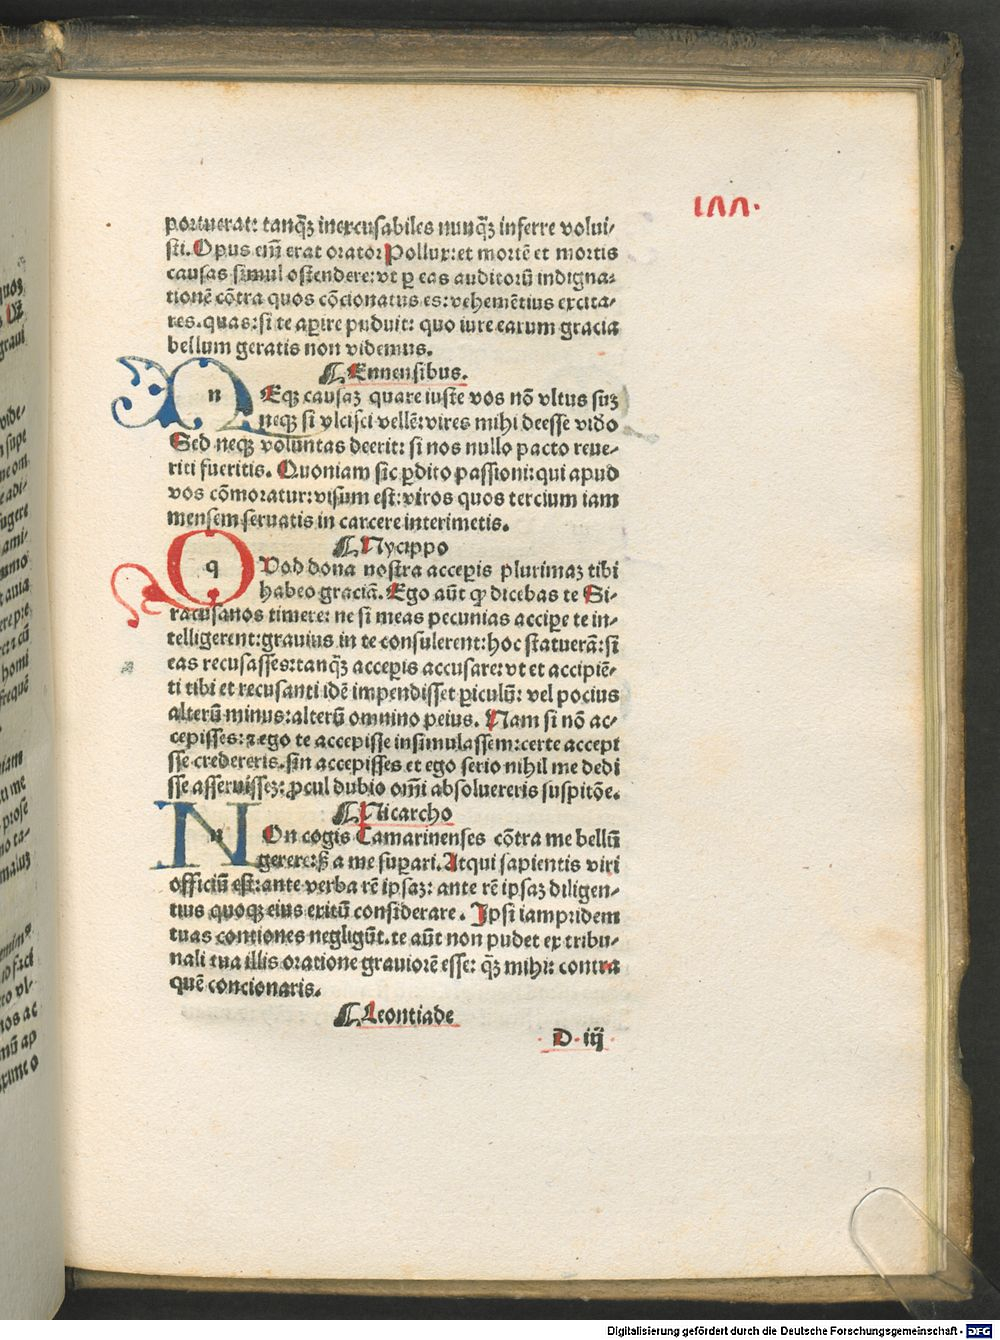 ıʌʌ.
portuerat: tanqȝ inexcusabiles nunqȝ inferre volui-
sti. Opus eni͂ erat orator Pollux: et morte͂ et mortis
causas simul ostendere: vt ꝑ eas auditoru͂ indigna-
tione͂ co͂tra quos co͂cionatus es: veheme͂tius excita-
res. quas: si te aꝑire puduit: quo iure earum gracia
bellum geratis non videmus.
Ennensibus.
n Eqȝ causaȝ quare iuste vos no͂ vltus suȝ
neqȝ si vlcisci velle͂: vires mihi deesse video
Sed neqȝ voluntas deerit: si nos nullo pacto reue-
riti fueritis. Quoniam sic ꝑdito passioni: qui apud
vos co͂moratur: visum est: viros quos tercium iam
mensem seruatis in carcere interimetis.
Nycippo
q Vod dona nostra acceꝑis plurimaȝ tibi
habeo gracia͂. Ego au͂t ꝙ dicebas te Si-
racusanos timere: ne si meas pecunias acciꝑe te in-
telligerent: grauius in te consulerent: hoc statuera͂: si
eas recusasses: tanqȝ acceꝑis accusare: vt et accipie͂-
ti tibi et recusanti ide͂ impendisset ꝑiculu͂: vel pocius
alteru͂ minus: alteru͂ omnino peius. Nam si no͂ ac-
cepisses: ⁊ ego te accepisse insimulassem: certe accepi
sse credereris. sin accepisses et ego serio nihil me dedi
sse asseruisseȝ: ꝓcul dubio om͂i absoluereris suspito͂e.
Nicarcho
n On cogis Camarinenses co͂tra me bellu͂
gerere: sꝫ a me suꝑari. Atqui sapientis viri
officiu͂ est: ante verba re͂ ipsaȝ: ante re͂ ipsaȝ diligen-
tius quoqȝ eius exitu͂ considerare. Ipsi iampridem
tuas contiones negligu͂t. te au͂t non pudet ex tribu-
nali tua illis oratione grauiore͂ esse: qȝ mihi: contra
que͂ concionaris.
Leontiade
D. iij
Digitalisierung gefördert durch die Deutsche Forschungsgemeinschaft - DFG